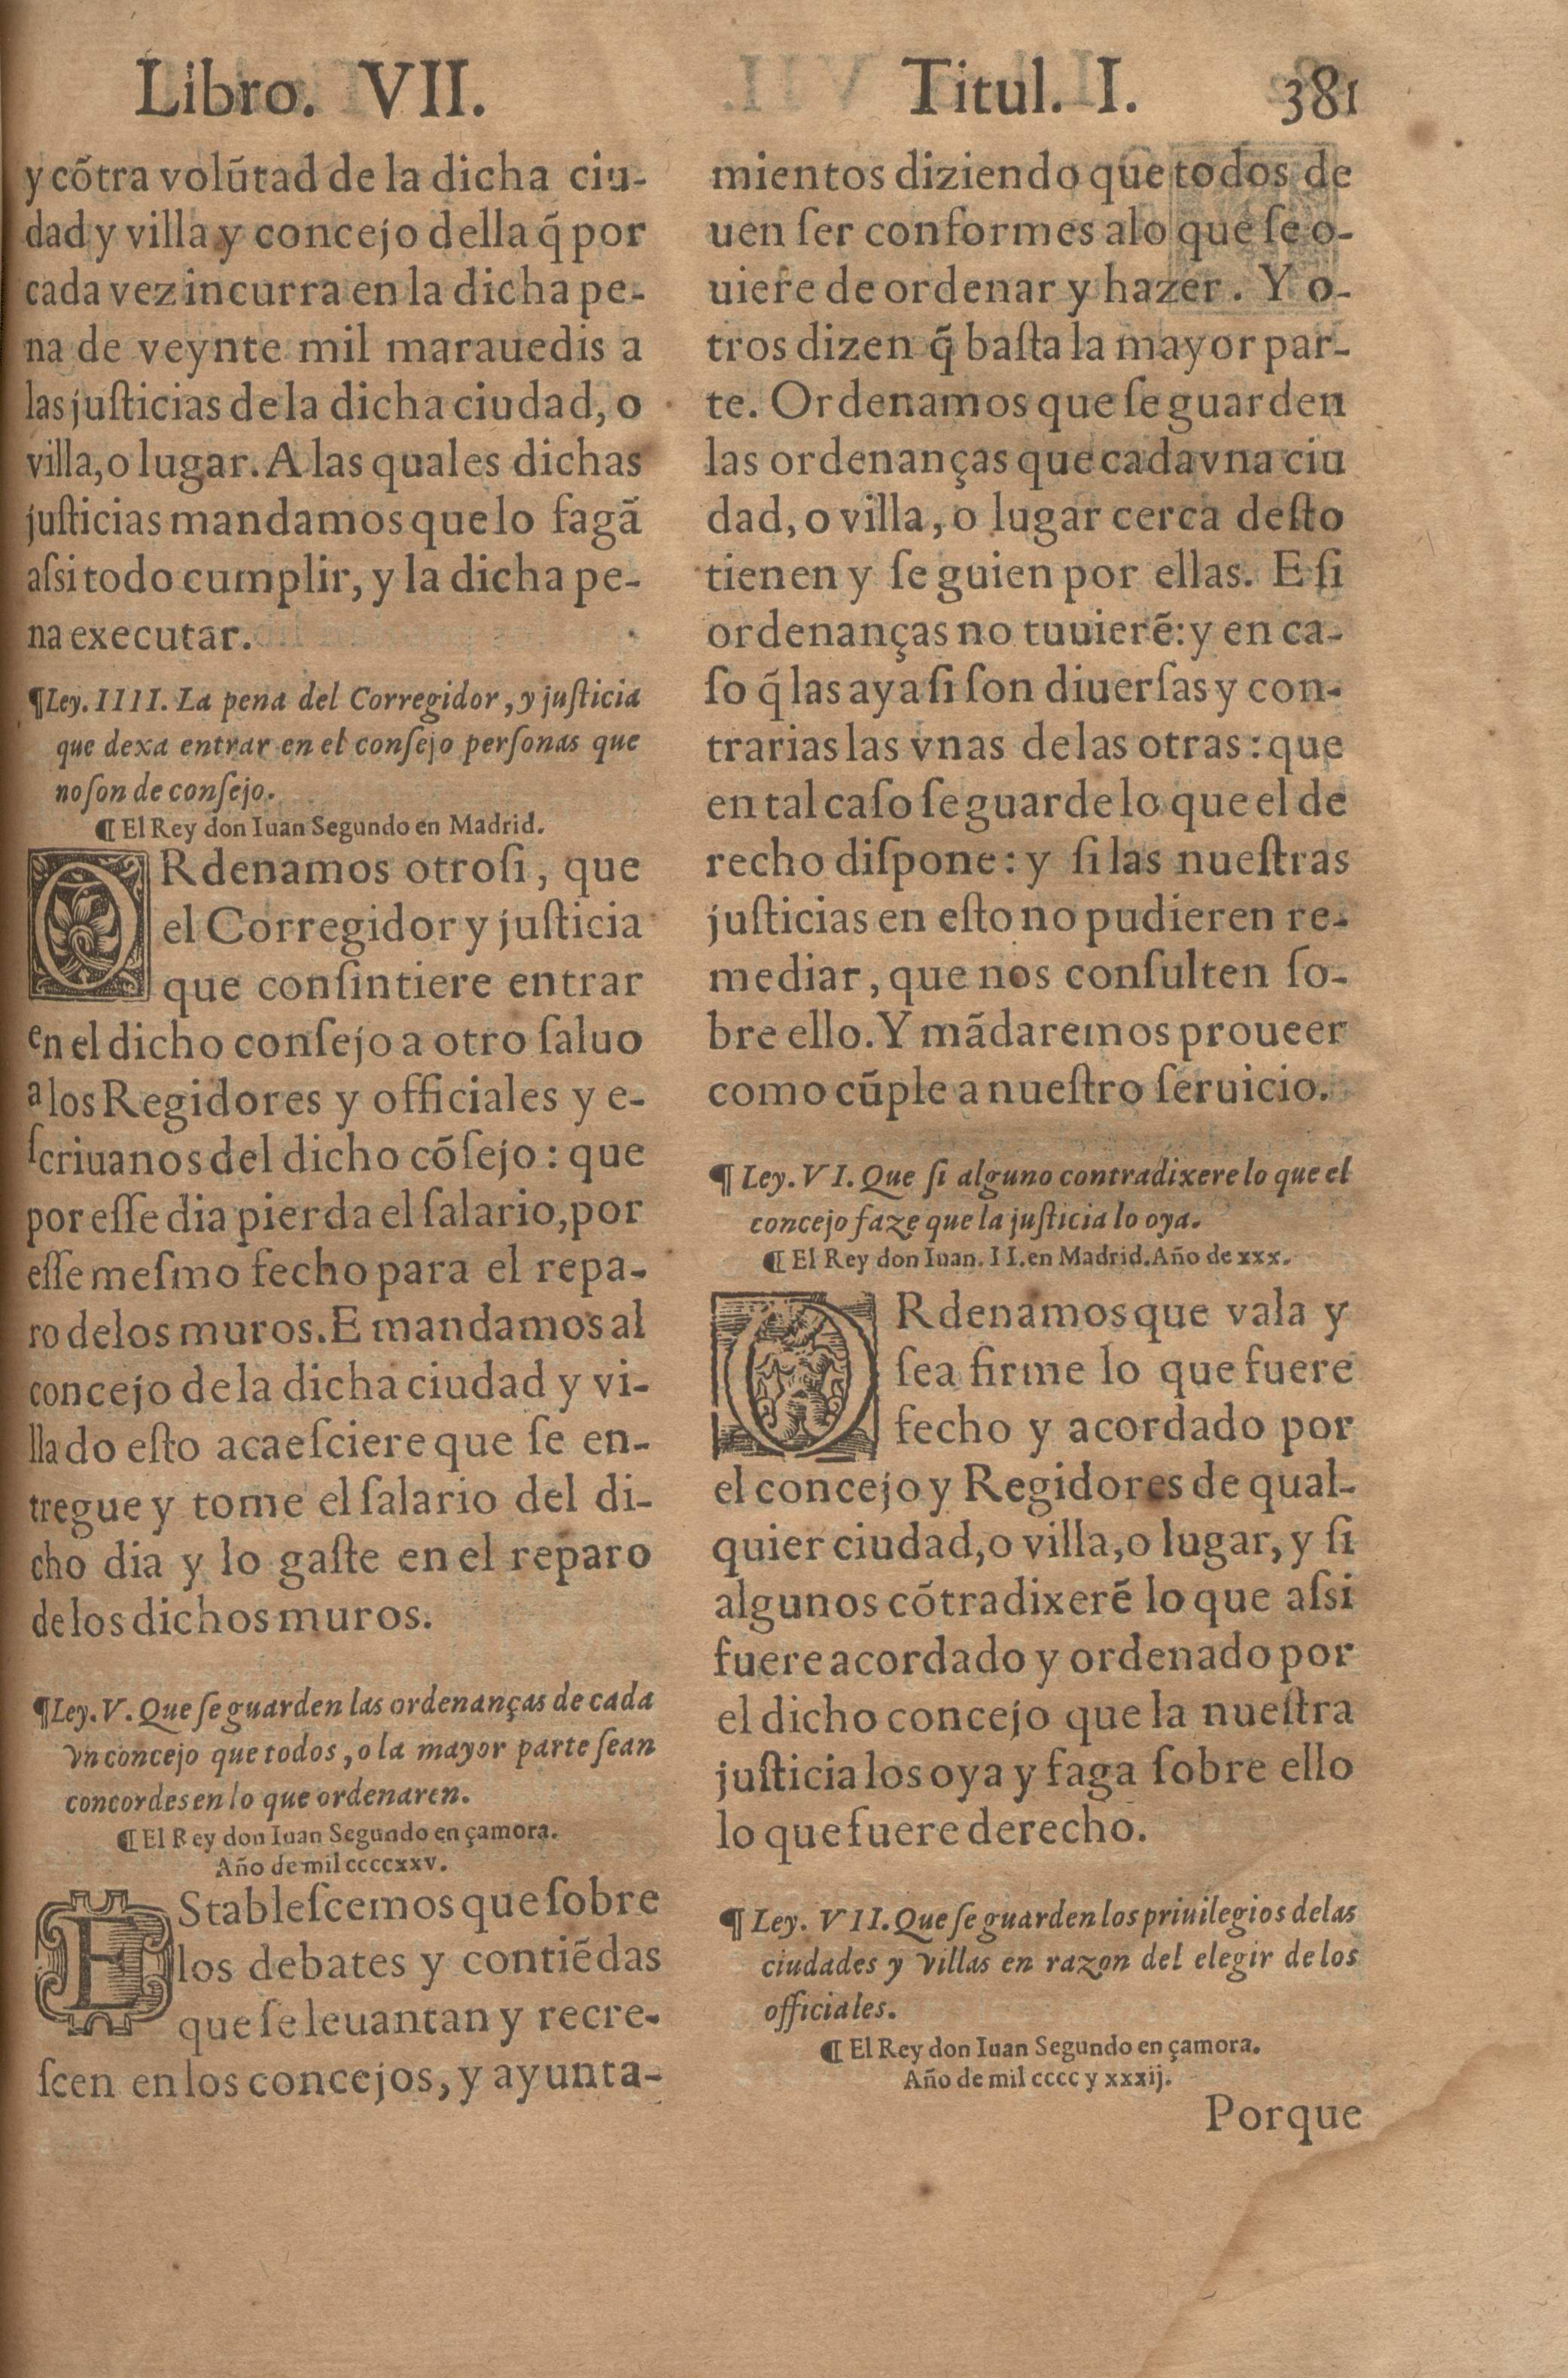 Libro. VII. Titul. I. 381
y cõtra volũtad de la dicha ciu-
dad y villa y concejo della q̃ por
cada vez incurra en la dicha pe-
na de veynte mil marauedis a
las juſticias de la dicha ciudad, o
villa, o lugar. A las quales dichas
juſticias mandamos que lo fagã
aſsi todo cumplir, y la dicha pe-
na executar.
¶Ley. IIII. La pena del Corregidor, y juſticia
que dexa entrar en el conſejo perſonas que
no ſon de conſejo.
¶ El Rey don Iuan Segundo en Madrid.
ORdenamos otroſi, que
el Corregidor y juſticia
que conſintiere entrar
en el dicho conſejo a otro ſaluo
a los Regidores y officiales y e-
ſcriuanos del dicho cõſejo: que
por eſſe dia pierda el ſalario, por
eſſe meſmo fecho para el repa-
ro delos muros. E mandamos al
concejo de la dicha ciudad y vi-
lla do eſto acaeſciere que ſe en-
tregue y tome el ſalario del di-
cho dia y lo gaſte en el reparo
de los dichos muros.
¶Ley. V. Que ſe guarden las ordenanças de cada
vn concejo que todos, o la mayor parte ſean
concordes en lo que ordenaren.
¶ El Rey don Iuan Segundo en çamora.
Año de mil ccccxxv.
EStableſcemos que ſobre
los debates y contiẽdas
que ſe leuantan y recre-
ſcen en los concejos, y ayunta-
mientos diziendo que todos de
uen ſer conformes alo que ſe o-
uiere de ordenar y hazer. Y o-
tros dizen q̃ baſta la mayor par-
te. Ordenamos que ſe guarden
las ordenanças que cada vna ciu
dad, o villa, o lugar cerca deſto
tienen y ſe guien por ellas. E ſi
ordenanças no tuuierẽ: y en ca-
ſo q̃ las aya ſi ſon diuerſas y con-
trarias las vnas delas otras: que
en tal caſo ſe guarde lo que el de
recho diſpone: y ſi las nueſtras
juſticias en eſto no pudieren re-
mediar, que nos conſulten ſo-
bre ello. Y mãdaremos proueer
como cũple a nueſtro ſeruicio.
¶ Ley. VI. Que ſi alguno contradixere lo que el
concejo faze que la juſticia lo oya.
¶ El Rey don Iuan. II. en Madrid. Año de xxx.
ORdenamos que vala y
ſea firme lo que fuere
fecho y acordado por
el concejo y Regidores de qual-
quier ciudad, o villa, o lugar, y ſi
algunos cõtradixerẽ lo que aſsi
fuere acordado y ordenado por
el dicho concejo que la nueſtra
juſticia los oya y faga ſobre ello
lo que fuere derecho.
¶ Ley. VII. Que ſe guarden los priuilegios delas
ciudades y villas en razon del elegir de los
officiales.
¶ El Rey don Iuan Segundo en çamora.
Año de mil cccc y xxxij.
Porque